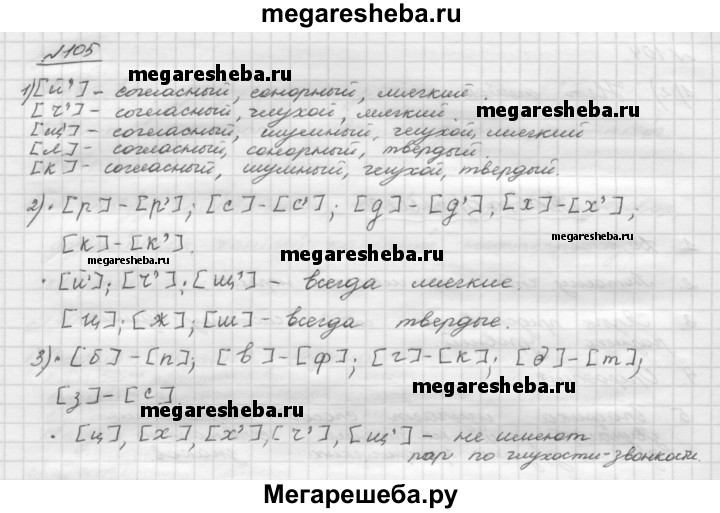 megaresheba.ru
№105
1) [й'] - согласный, сонорный, мягкий.
megaresheba.ru
[ч'] - согласный, глухой, мягкий.
megaresheba.ru
[щ] - согласный, шумный, глухой, мягкий
[л] - согласный, сонорный, твердый.
[к] - согласный, шумный, глухой, твердый.
2) • [р] - [р']; [с] - [с']; [д] - [д']; [х] - [х'];
[к] - [к'].
megaresheba.ru
megaresheba.ru
megaresheba.ru
• [й']; [ч']; [щ'] - всегда мягкие
[ц]; [ж]; [ш] - всегда твердые.
3) • [б] - [п]; [в] - [ф]; [г] - [к]; [д] - [т];
[з] - [с].
megaresheba.ru
megaresheba.ru
• [ц], [х], [х'], [ч'], [щ'] - не имеют
пар по глухости-звонкости.
Мегарешеба.ру